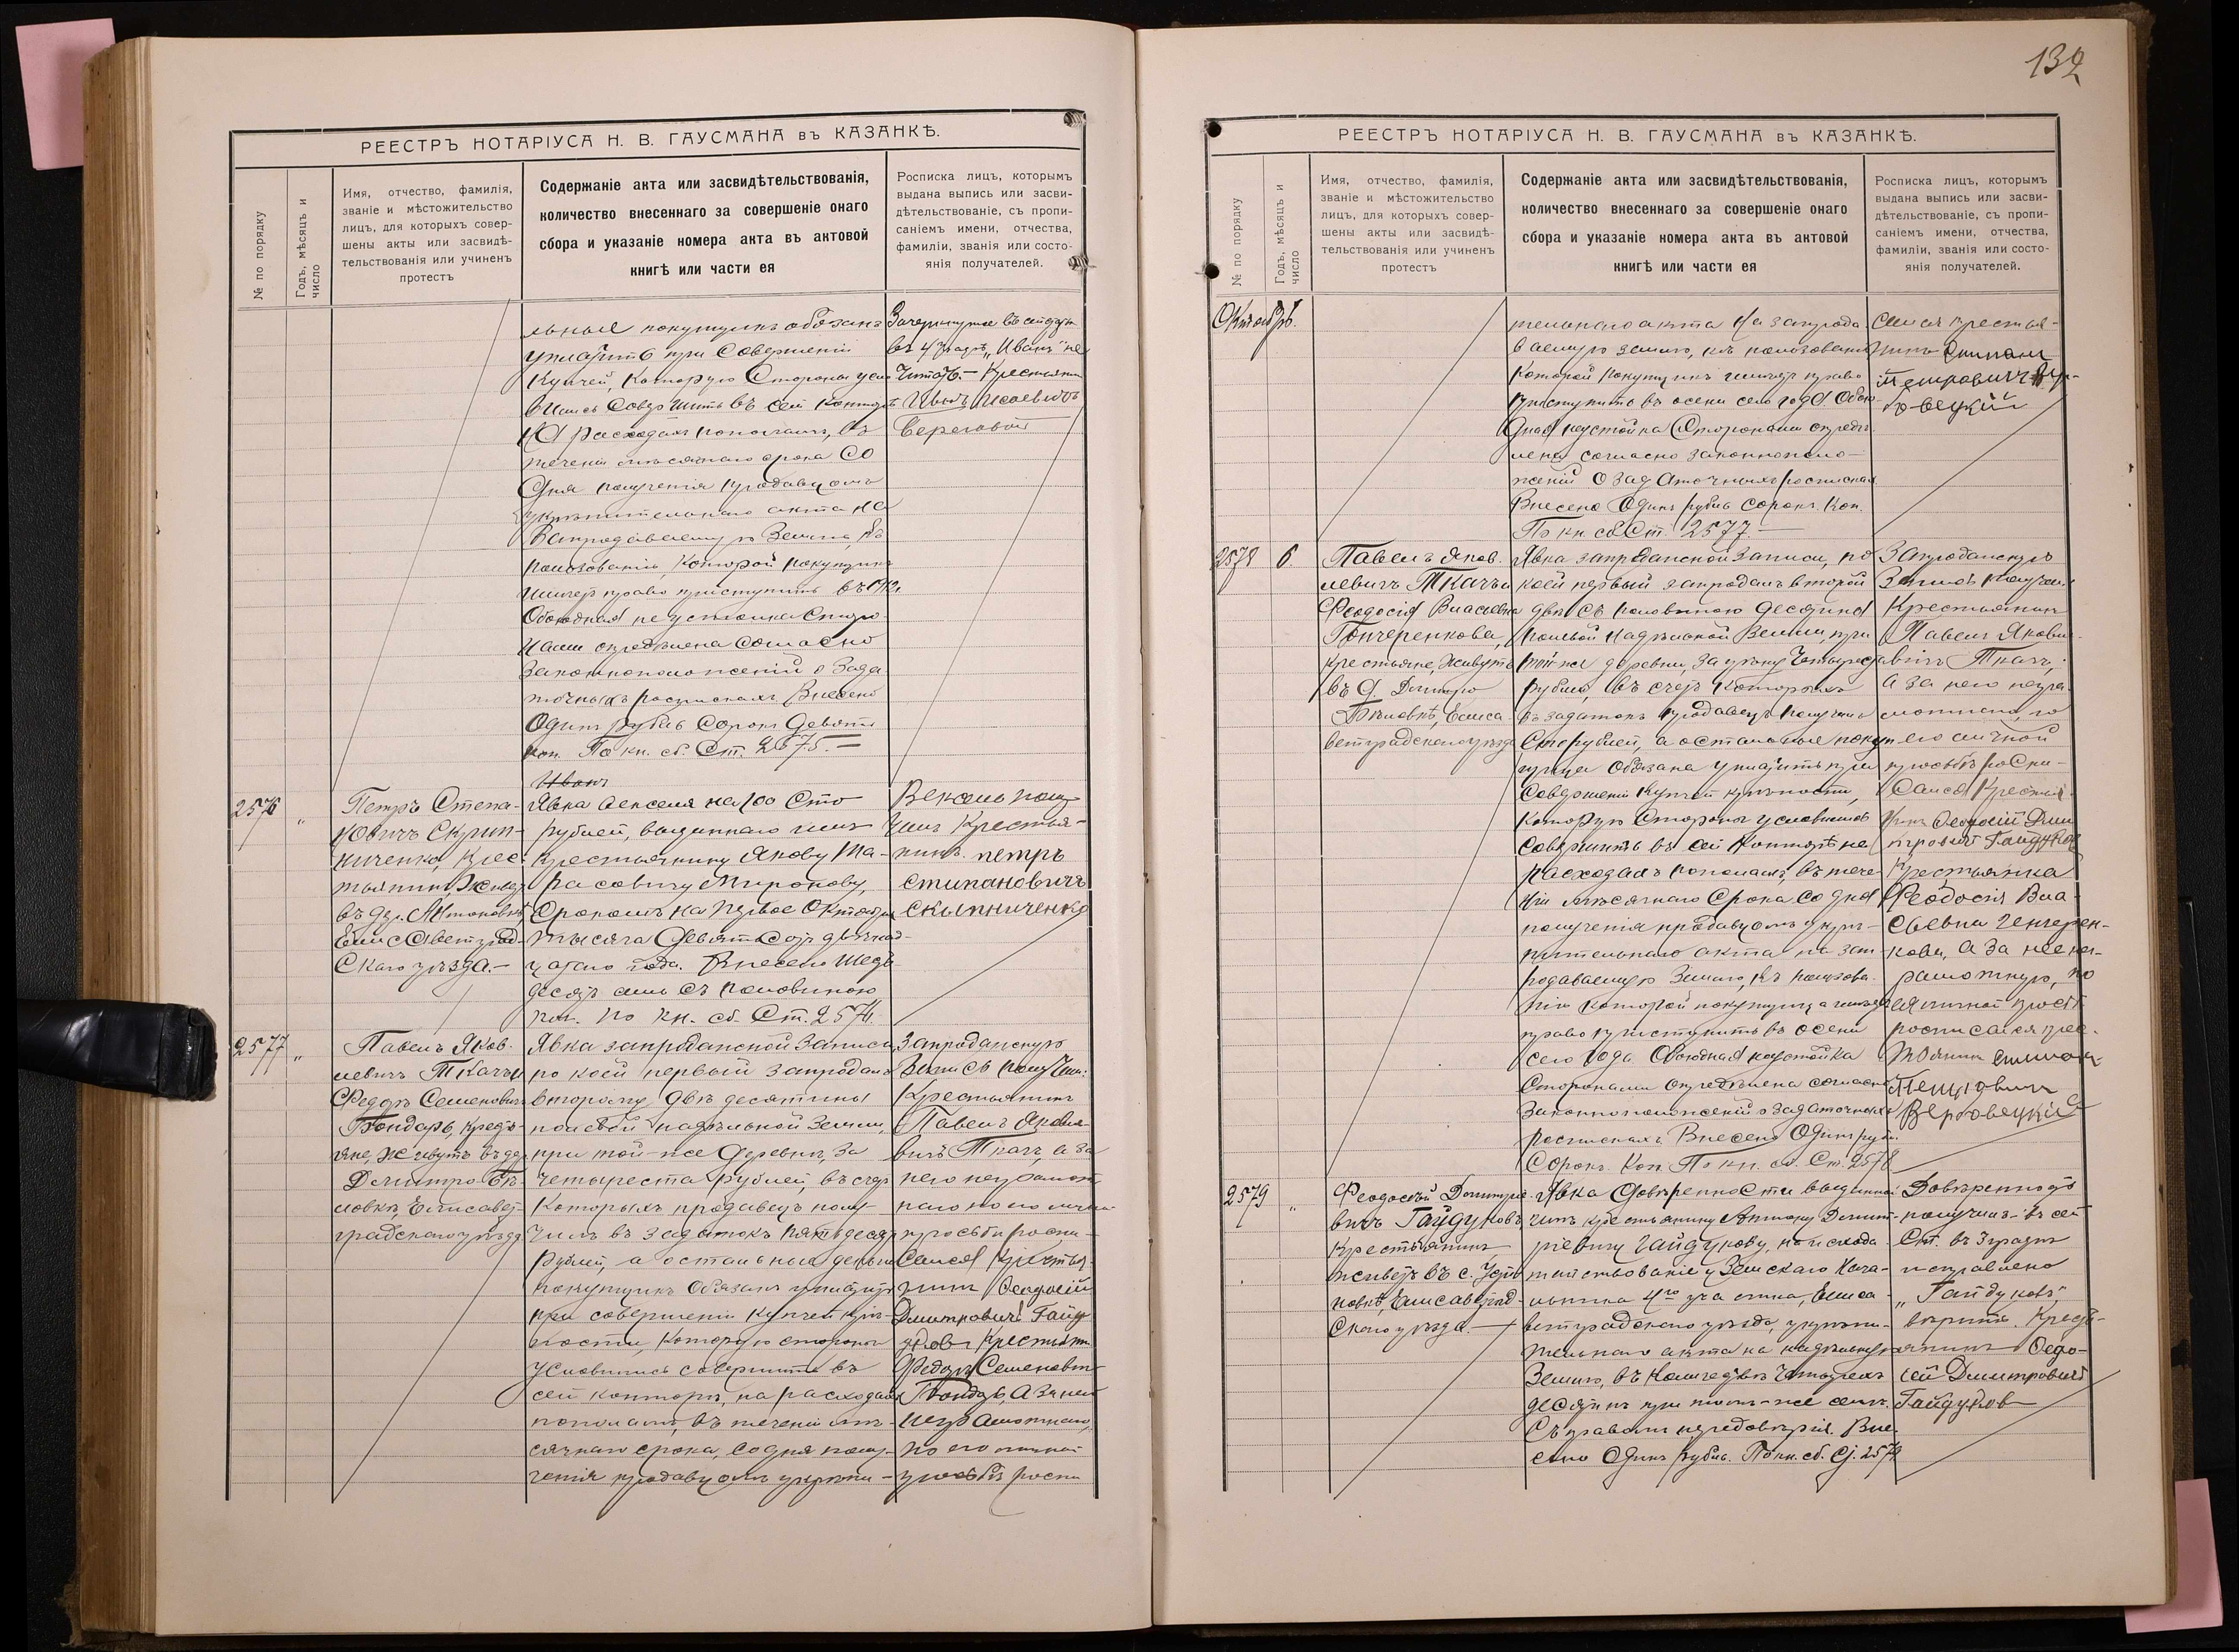 132
РЕЕСТРЪ НОТАРІУСА Н. В. ГАУСМАНА въ КАЗАНКѢ.
№ по порядку
Годъ, мѣсяцъ и
число
Имя, отчество, фамилія,
званіе и мѣстожительство
лицъ, для которыхъ совер-
шены акты или засвидѣ-
тельствованія или учиненъ
протестъ
Содержаніе акта или засвидѣтельствованія,
количество внесеннаго за совершеніе онаго
сбора и указаніе номера акта въ актовой
книгѣ или части ея
Росписка лицъ, которымъ
выдана выпись или засви-
дѣтельствованіе, съ пропи-
саніемъ имени, отчества,
фамиліи, званія или состо-
янія получателей.
льные покупщикъ обязанъ
уплатить при совершеніи
купчей, которую стороны усло
вились совершить въ сей конторѣ
на расходахъ пополамъ, въ
теченіи мѣсячнаго срока со
дня полученія продавцомъ
укрѣпительнаго акта на
запродаваемую землю, къ
пользованію которой покупщикъ
имѣетъ право приступить въ
Обоюдная неустойка сторо-
нами опредѣлена согласно
законоположеній о зада-
точныхъ роспискахъ. Внесено
Одинъ рубль сорокъ девять
коп. По кн. сб. Ст. 2575.—
Зачеркнутое въ
въ 4 "Иванъ" не
читать.— Крестьянинъ
Иванъ Исаевичъ
Береговой
2576
"
Петръ Степа-
новичъ Скрип-
ниченко, крес-
тьянинъ, живетъ
въ дер. Антоновкѣ,
Елисаветград-
скаго уѣзда.—
Иванъ
Явка векселя на 100 сто
рублей, выданнаго имъ
крестьянину Якову Та-
расовичу Миронову,
срокомъ на первое Октября
тысяча девятьсотъ двѣнад-
цатаго года. Внесено шесть
десятъ семь съ половиною
коп. По кн. сб. Ст. 2576.
Вексель полу-
чилъ крестья-
нинъ. петръ
стипановичъ
скыпниченко
2577
"
Павелъ Яков-
левичъ Ткачъ и
Федоръ Семеновичъ
Бондарь, кресть-
яне, живутъ въ дер.
Дмитро-Бѣ-
ловкѣ, Елисавет-
градскаго уѣзда
Явка запроданской записи,
по коей первый запродалъ
второму двѣ десятины
полевой надѣльной земли,
при той-же деревнѣ, за
четыреста рублей, въ счетъ
которыхъ продавецъ полу-
чилъ въ задатокъ пятьдесятъ
рублей, а остальныя деньги
покупщикъ обязанъ уплатить
при совершеніи купчей крѣ-
пости, которую стороны
условились совершить въ
сей конторѣ, на расходахъ
пополамъ, въ теченіи мѣ-
сячнаго срока, со дня полу-
ченія продавцомъ укрѣпи-
Запроданскую
запись получилъ:
Крестьянинъ
Павелъ Яковле-
вичъ Ткачъ, а за
него неграмот-
наго по его личной
просьбѣ роспи-
сался крестья-
нинъ Феодосій
Дмитровичъ Гайд
уковъ Крестьянинъ
Федоръ Семеновичъ
Бондарь, а за него
неграмотнаго,
по его личной
просьбѣ роспи
РЕЕСТРЪ НОТАРІУСА Н. В. ГАУСМАНА въ КАЗАНКѢ.
№ по порядку
Годъ, мѣсяцъ и
число
Имя, отчество, фамилія,
званіе и мѣстожительство
лицъ, для которыхъ совер-
шены акты или засвидѣ-
тельствованія или учиненъ
протестъ
Содержаніе акта или засвидѣтельствованія,
количество внесеннаго за совершеніе онаго
сбора и указаніе номера акта въ актовой
книгѣ или части ея
Росписка лицъ, которымъ
выдана выпись или засви-
дѣтельствованіе, съ пропи-
саніемъ имени, отчества,
фамиліи, званія или состо-
янія получателей.
Октябрь.
тельнаго акта на запрода
ваемую землю, къ пользованію
которой покупщикъ имѣетъ право
приступить въ осени сего года. Обою-
дная неустойка сторонами опредѣ-
лена согласно законополо-
женій о задаточныхъ роспискахъ
Внесено Одинъ рубль сорокъ коп.
По кн. сб. Ст. 2577.—
сался крестья-
нинъ Степанъ
Петровичъ Вер-
бовецкій
2578
6.
Павелъ Яков-
левичъ Ткачъ и
Феодосія Власьевна
Гончеренкова,
крестьяне, живутъ
въ д. Дмитро
Бѣловкѣ, Елиса-
ветградскаго уѣзда
Явка запроданской записи, по
коей первый запродалъ второй
двѣ съ половиною десятины
полевой надѣльной земли, при
той-же деревнѣ, за цѣну четыреста
рублей, въ счетъ которыхъ
въ задатокъ продавецъ получилъ
сто рублей, а остальные покуп-
щица обязана уплатить при
совершеніи купчей крѣпости,
которую стороны условились
совершить въ сей конторѣ на
расходахъ пополамъ, въ тече-
ніи мѣсячнаго срока со дня
полученія продавцомъ укрѣ-
пительнаго акта на зап-
родаваемую землю, къ пользова-
нію которой покупщица имѣетъ
право приступить въ осени
сего года Обоюдная неустойка
сторонами опредѣлена согласно
законоположеній о задаточныхъ
роспискахъ Внесено Одинъ руб.
сорокъ. коп. По кн. сб. Ст. 2578
Запроданскую
запись получилъ
Крестьянинъ
Павелъ Яковле-
вичъ Ткачъ,
а за него негра-
мотнаго, по
его личной
просьбѣ роспи-
сался Крестья-
нинъ Феодосій Дми
тровичъ Гайдуковъ
Крестьянка
Феодосія Вла-
сьевна Генчерен-
кова, а за нее не-
грамотную, по
ея личной просьбѣ
росписался крес-
тьянинъ Степанъ
Петровичъ
Вербовецкій
2579
"
Феодосій Дмитріе-
вичъ Гайдуковъ
крестьянинъ,
живетъ въ с. Устѣ
новкѣ, Елисаветград-
скаго уѣзда.—
Явка довѣренности выданной
имъ крестьянину Антону Дмит-
ріевичу Гайдукову, на исхода-
тайствованіе у Земскаго Нача-
льника 4го участка, Елиса-
ветградскаго уѣзда, укрѣпи-
тельнаго акта на надѣльную
землю, въ количествѣ четырехъ
десятинъ при томъ-же селѣ.
Съ правомъ передовѣрія. Вне-
сено Одинъ рубль. По кн. сб. Ст. 2579
Довѣренность
получилъ: въ сей
Ст. въ 3 графѣ
исправлено
"Гайдуковъ"
вѣрить. Кресть-
янинъ Федо-
сей Дмитровичъ
Гайдуков